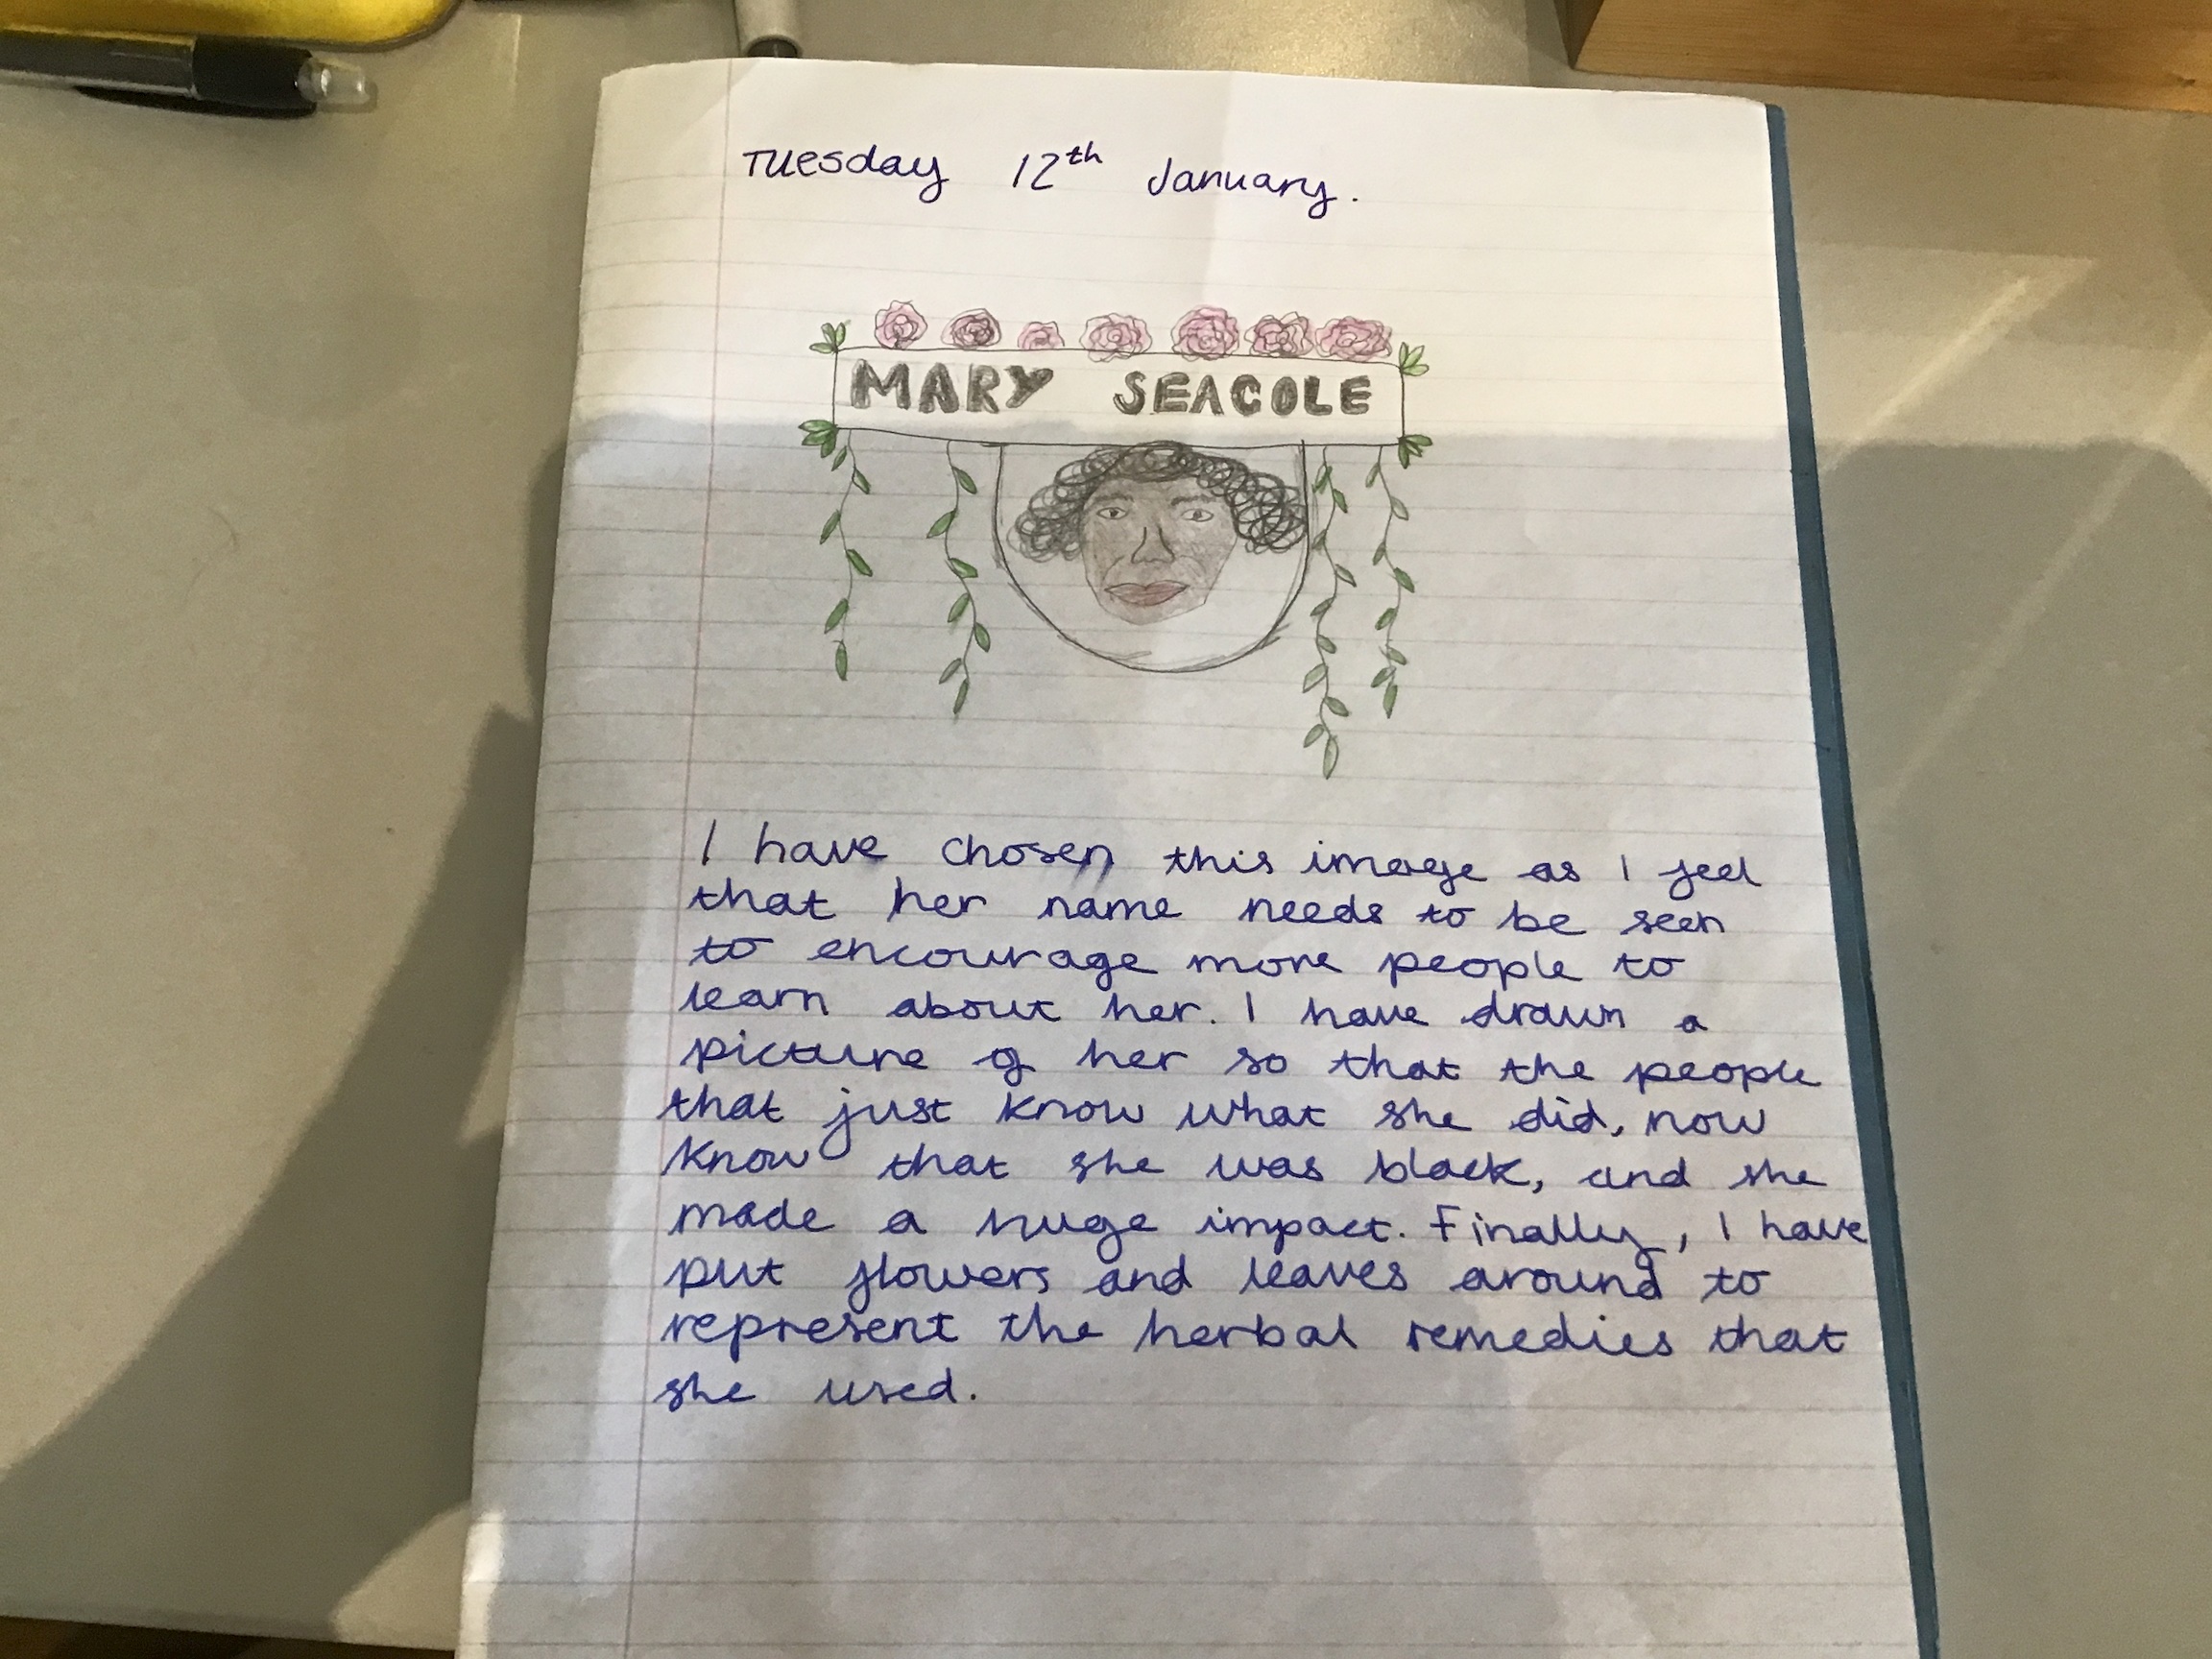 Tuesday 12th January.
MARY SEACOLE
I have chosen this image as I feel
that her name needs to be seen
to encourage more people to
learn about her. I have drawn a
picture of her so that the people
that just know what she did, now
know that she was black, and she
made a huge impact. Finally, I have
put flowers and leaves around to
represent the herbal remedies that
she used.